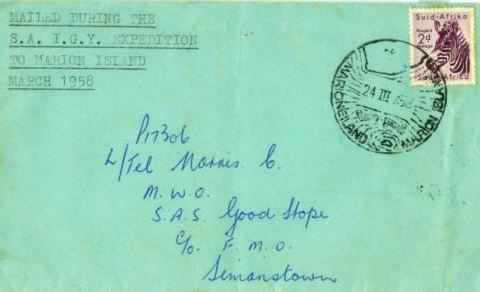 MAILED DURING THE
S.A. I.G.Y. EXPEDITION
TO MARION ISLAND
MARCH 1958
Suid-Afrika
Posgeld
2d
Postage
South Africa
MARIONEILAND
24 III 1958
MARION ISLAND
P17306
L/Tel Morris C.
M.W.O.
S.A.S. Good Hope
C/o F.M.O.
Simonstown